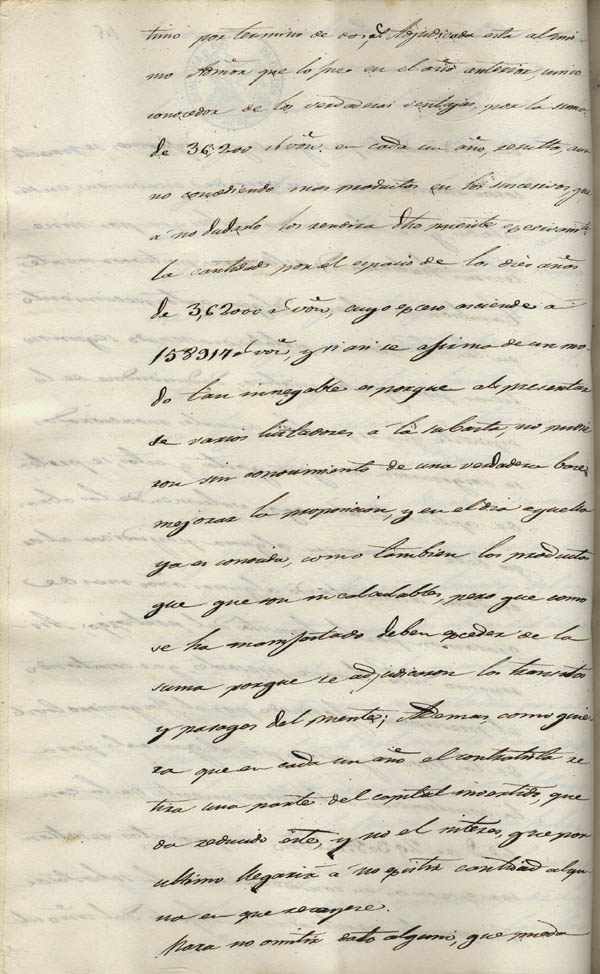 timo por termino de dos, Adjudicada esta al mis
mo Señor que lo fue en el año anterior, unico
conocedor de las verdaderas ventajas, por la suma
de 36,200 r.s von. en cada un año, resulta, aun
no concediendo mas productos en los sucesivos, que
a no dudarlo los rendira dho puente
la cantidad por el espacio de los diez años
de 3,62000 r.s von, cuyo exceso asciende a
158317 r.s von, y si asi se afirma de un mo
do tan innegable es porque al presentar
se varios licitadores á la subasta, no pudie
ron sin conocimiento de una verdadera base
mejorar la proposicion, y en el dia aquella
ya es conocida, como tambien los productos
que que son incalculables, pero que como
se ha manifestado deben exceder de la
suma porque se adjudicaron los transitos
y pasages del puente; Ademas, como quie
ra que en cada un año el contratista re
tira una parte del capital invertido, que
da reducido este, y no el interes, que por
ultimo llegaria á no existir cantidad algu
na en que recayere.
Para no omitir dato alguno, que pueda